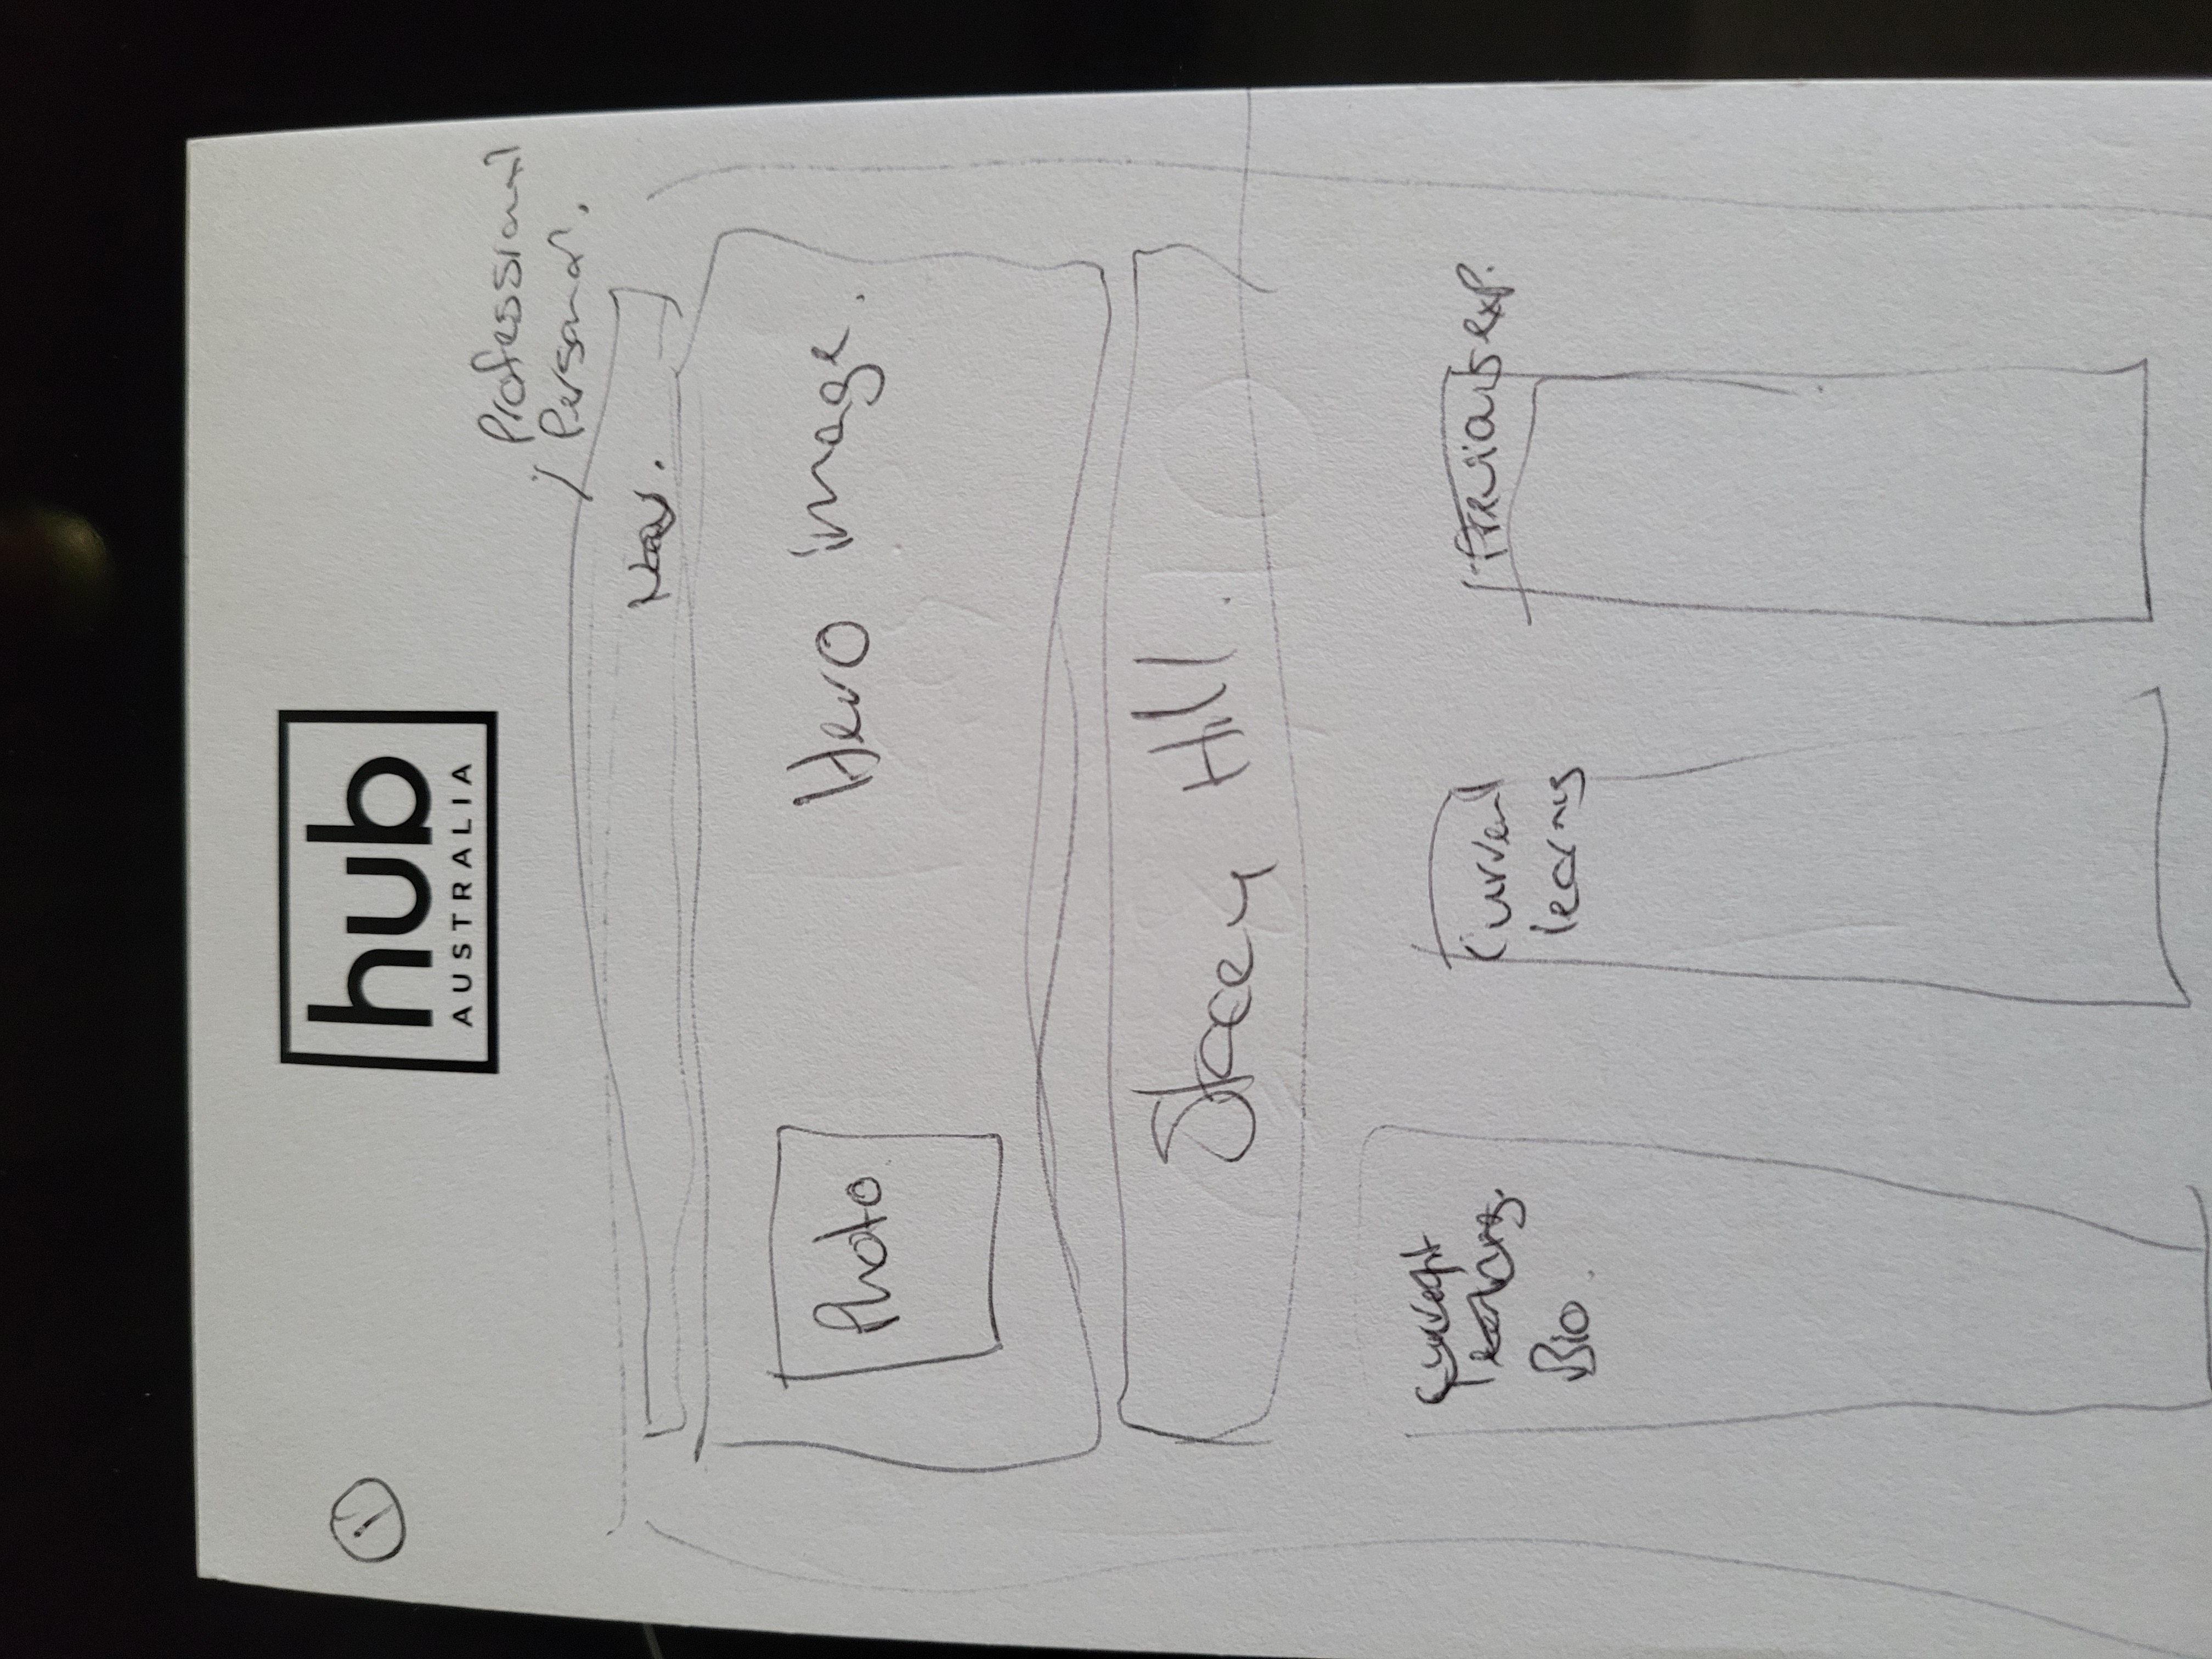 1
hub
AUSTRALIA
Professional
/ Personal.
Nav.
Photo
Hero image.
Stacey Hill.
Current
learnings
Bio.
Current
learnings
Previous exp.